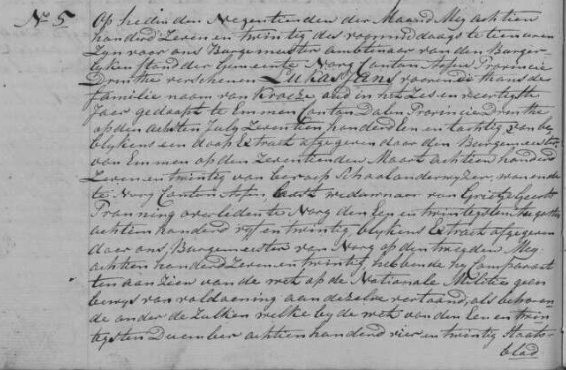 No 5
Op heden den Negentienden der Maand Mey achtien
honderd Zeven en twintig des voormiddaags te tien uren
Zyn voor ons Burgemeester ambtenaar van den Burger
lyken stand der Gemeente Norg Canton Assen Provincie
Drenthe verschenen Lukas Jans voerende thans de
familie naam van Kroeze oud in het Zes en veertigste
Jaar gedoopt te Emmen Canton Dalen Provincie Drenthe
op den achtsten July Zeventien honderd een en tachtig van be
blykens een doop Extract afgegeven door den Burgemeester
van Emmen op den Zeventienden Maart achtien honderd
Zeven en twintig van beroep Schoolonderwyzer, wonende
te Norg Canton Assen, laast weduwnaar van Grietje Geerts
Pranning overleden te Norg den Een en twintigsten
achtien honderd vyf en twintig blykens Extract afgegeven
door ons, Burgemeester van Norg op den tweeden Mey
achtien honderd Zeven en twintig hebbende hy Comparant
ten aanzien van de wet op de Nationale Militie geen
bewys van voldoening aan dezelve vertoond, als behoren
de onder de Zulken welke by de wet van den Een en twin
tigsten December achtien honderd vier en twintig Staats-
blad